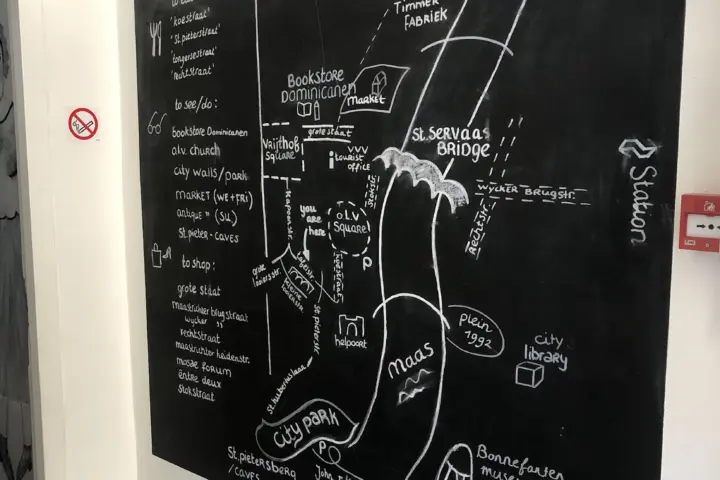 'koestraat'
'St.pieterstraat'
'tongersestraat'
'Rechtstraat'
to see/do:
bookstore Dominicanen
o.l.v. church
city walls/park
market (we+fri)
antique " (su)
St.pieter-caves
to shop:
grote staat
maastrichter brugstraat
wycker "
rechtstraat
maastrichter heidenstr.
mosae forum
entre deux
stokstraat
Timmer
Fabriek
Bookstore
Dominicanen
market
grotestaat
Vrijthof
Square
i tourist
office
St.Servaas
Bridge
Wycker Brugstr.
Rechtstr.
Station
Stokstr.
Kapoenstr.
you
are
here
O.L.V
Square
P
Koestraat
grote
looiersstr.
St pieterstr.
helpoort
Plein
1992
city
library
maas
St.hubertuslaan
City park
P
St.pietersberg
/caves
Bonnefanten